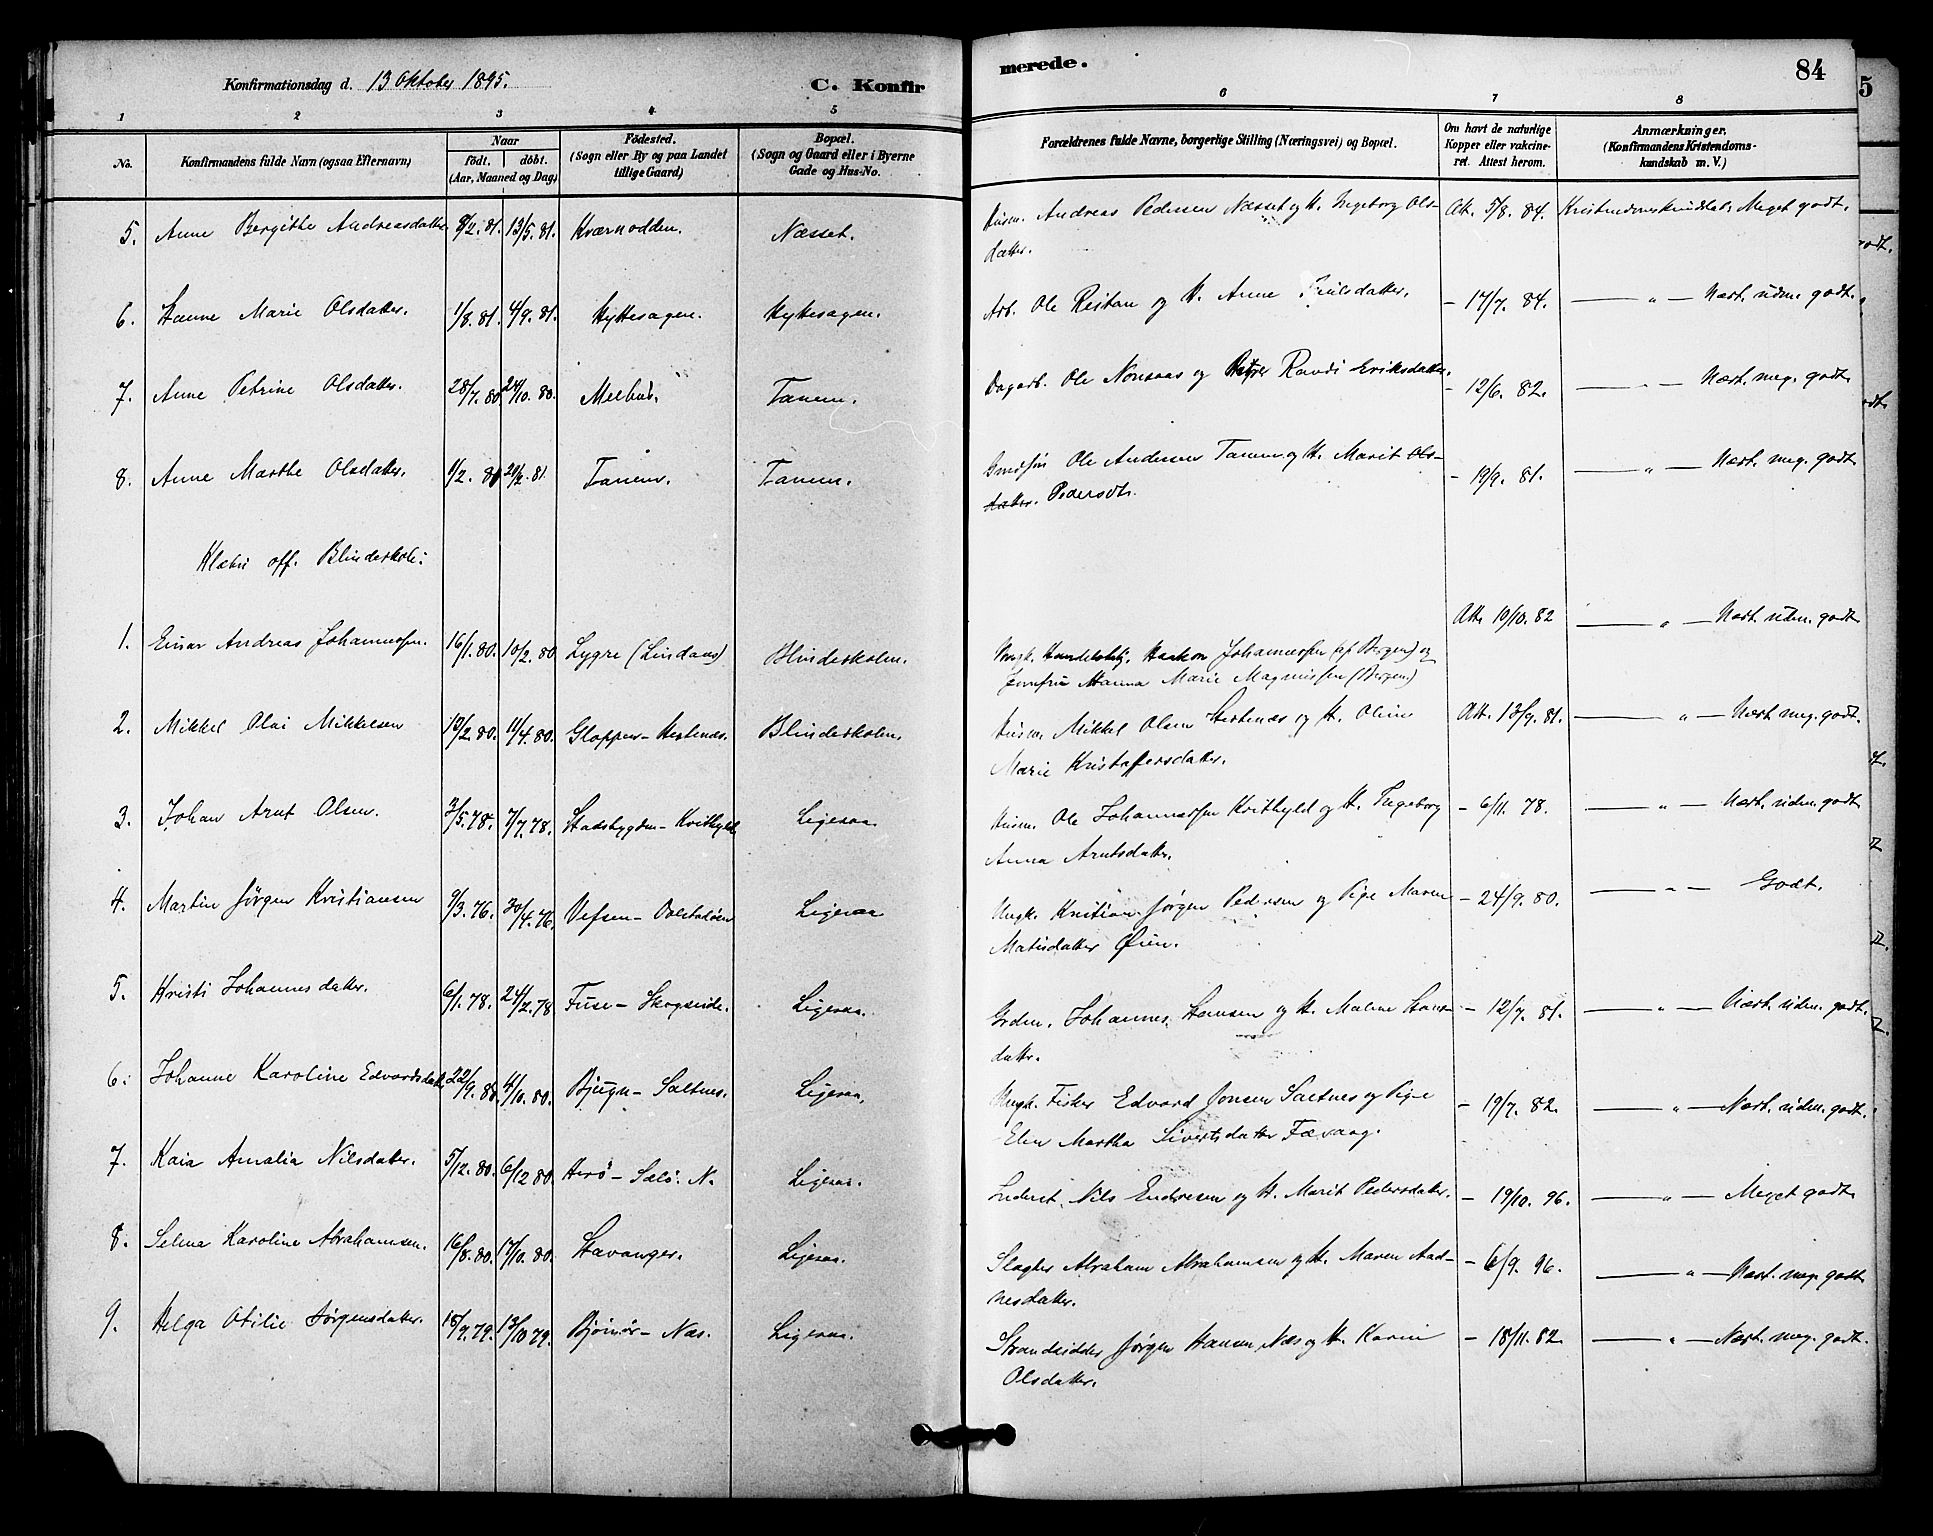 Konfirmationsdag d. 13 Oktober 1895. C. Konfirmerede. 84
1 2 3 4 5 6 7 8
No. Konfirmandens fulde Navn (ogsaa Efternavn) Naar födt. döbt. (Aar, Maaned og Dag) Födested. (Sogn eller By og paa Landet tillige Gaard) Bopæl. (Sogn og Gaard eller i Byerne Gade og Hus-No. Forældrenes fulde Navne, borgerlige Stilling (Næringsvei) og Bopæl. Om havt de naturlige Kopper eller vakcineret. Attest herom. Anmærkninger. (Konfirmandens Kristendomskundskab m. V.)
5. Anne Bergithe Andreasdatter 8/2. 81. 13/5. 81. Kværnodden. Næsset. Husm. Andreas Pedersen Næsset og H. Ingeborg Olsdatter. Att. 5/8. 84. Kristendomskundskab: Meget godt.
6. Hanne Marie Olsdatter. 1/8. 81. 4/9. 81. Hyttesagen. Hyttesagen. Arb. Ole Reitan og H. Anne Paulsdatter. – 17/7. 84. — " — Næst. uden. godt.
7. Anne Petrine Olsdatter. 28/7. 80. 24/10. 80. Melhus. Tanem. Dagarb. Ole Nonsaas og Randi Eriksdatter. – 12/6. 82. — " — Næst. meg. godt
8. Anne Marthe Olsdatter. 1/2. 81 20/2. 81 Tanem. Tanem. Ole Andersen Tanem og H. Marit Olsdatter. Pedersdt. – 19/9. 81. — " — Næst. meg. godt
Klæbu off. Blindeskole:
1. Einar Andreas Johannesen. 16/1. 80. 10/2. 80 Lygre (Lindaas) Blindeskolen. Ungk. Haakon Johannesen (af Bergen) og Jomfru Hanna Marie Magnussen (Bergen) Att. 10/10. 82 — " — Næst. uden. godt
2. Mikkel Olai Mikkelsen 12/2. 80. 11/4. 80. Gloppen – Hestenæs. Blindeskolen. Husm. Mikkel Olsen Hestenæs og H. Oline Marie Kristoffersdatter. Att. 13/9. 81. — " — Næst. meg. godt.
3. Johan Arnt Olsen. 3/5. 78. 7/7. 78. Stadsbygden – Kvithyld Ligesaa Husm. Ole Johannessen Kvithyld og H. Ingeborg Anna Arntsdatter. – 6/11. 78. — " — Næst. uden. godt
4. Martin Jørgen Kristiansen 9/3. 76. 30/4. 76. Vefsen – Ligesaa Ungk. Kristian Jørgen Pedersen og Pige Maren Matisdatter Øien. – 24/9. 80. — " — Godt.
5. Kristi Johannesdatter. 6/1. 78. 24/2. 78 Fuse – Skogseide. Ligesaa. Grdm. Johannes Hansen og H. Malene Hansdatter. – 12/7. 81. — " — Næst. uden. godt.
6. Johanne Karoline Edvardsdatter 22/9. 80. 4/10. 80. Bjugn – Saltnes. Ligesaa. Ungk. Fisker Edvard Jonsen Saltnes og Pige Elen Martha Sivertsdatter Fævaag. – 19/7. 82. — " — Næst. uden. godt.
7. Kaia Amalia Nilsdatter. 5/12. 80. 6/12 80. Herö – Ligesaa. Inderst. Nils Endresen og H. Marit Pedersdatter. – 19/10. 96. — " — Meget godt
8. Selma Karoline Abrahamsen. 16/8. 80. 17/10. 80. Stavanger. Ligesaa. Slagter Abraham Abrahamsen og H. Maren Aadnesdatter. – 6/9. 96. — " — Næst. meg. godt
9. Helga Otilie Jørgensdatter. 18/7. 79. 13/10 79. Bjönör – Næs. Ligesaa. Strandsidder Jørgen Hansen Næs og H. Karin Olsdatter. – 18/11. 82. — " — Næst. meg. godt.